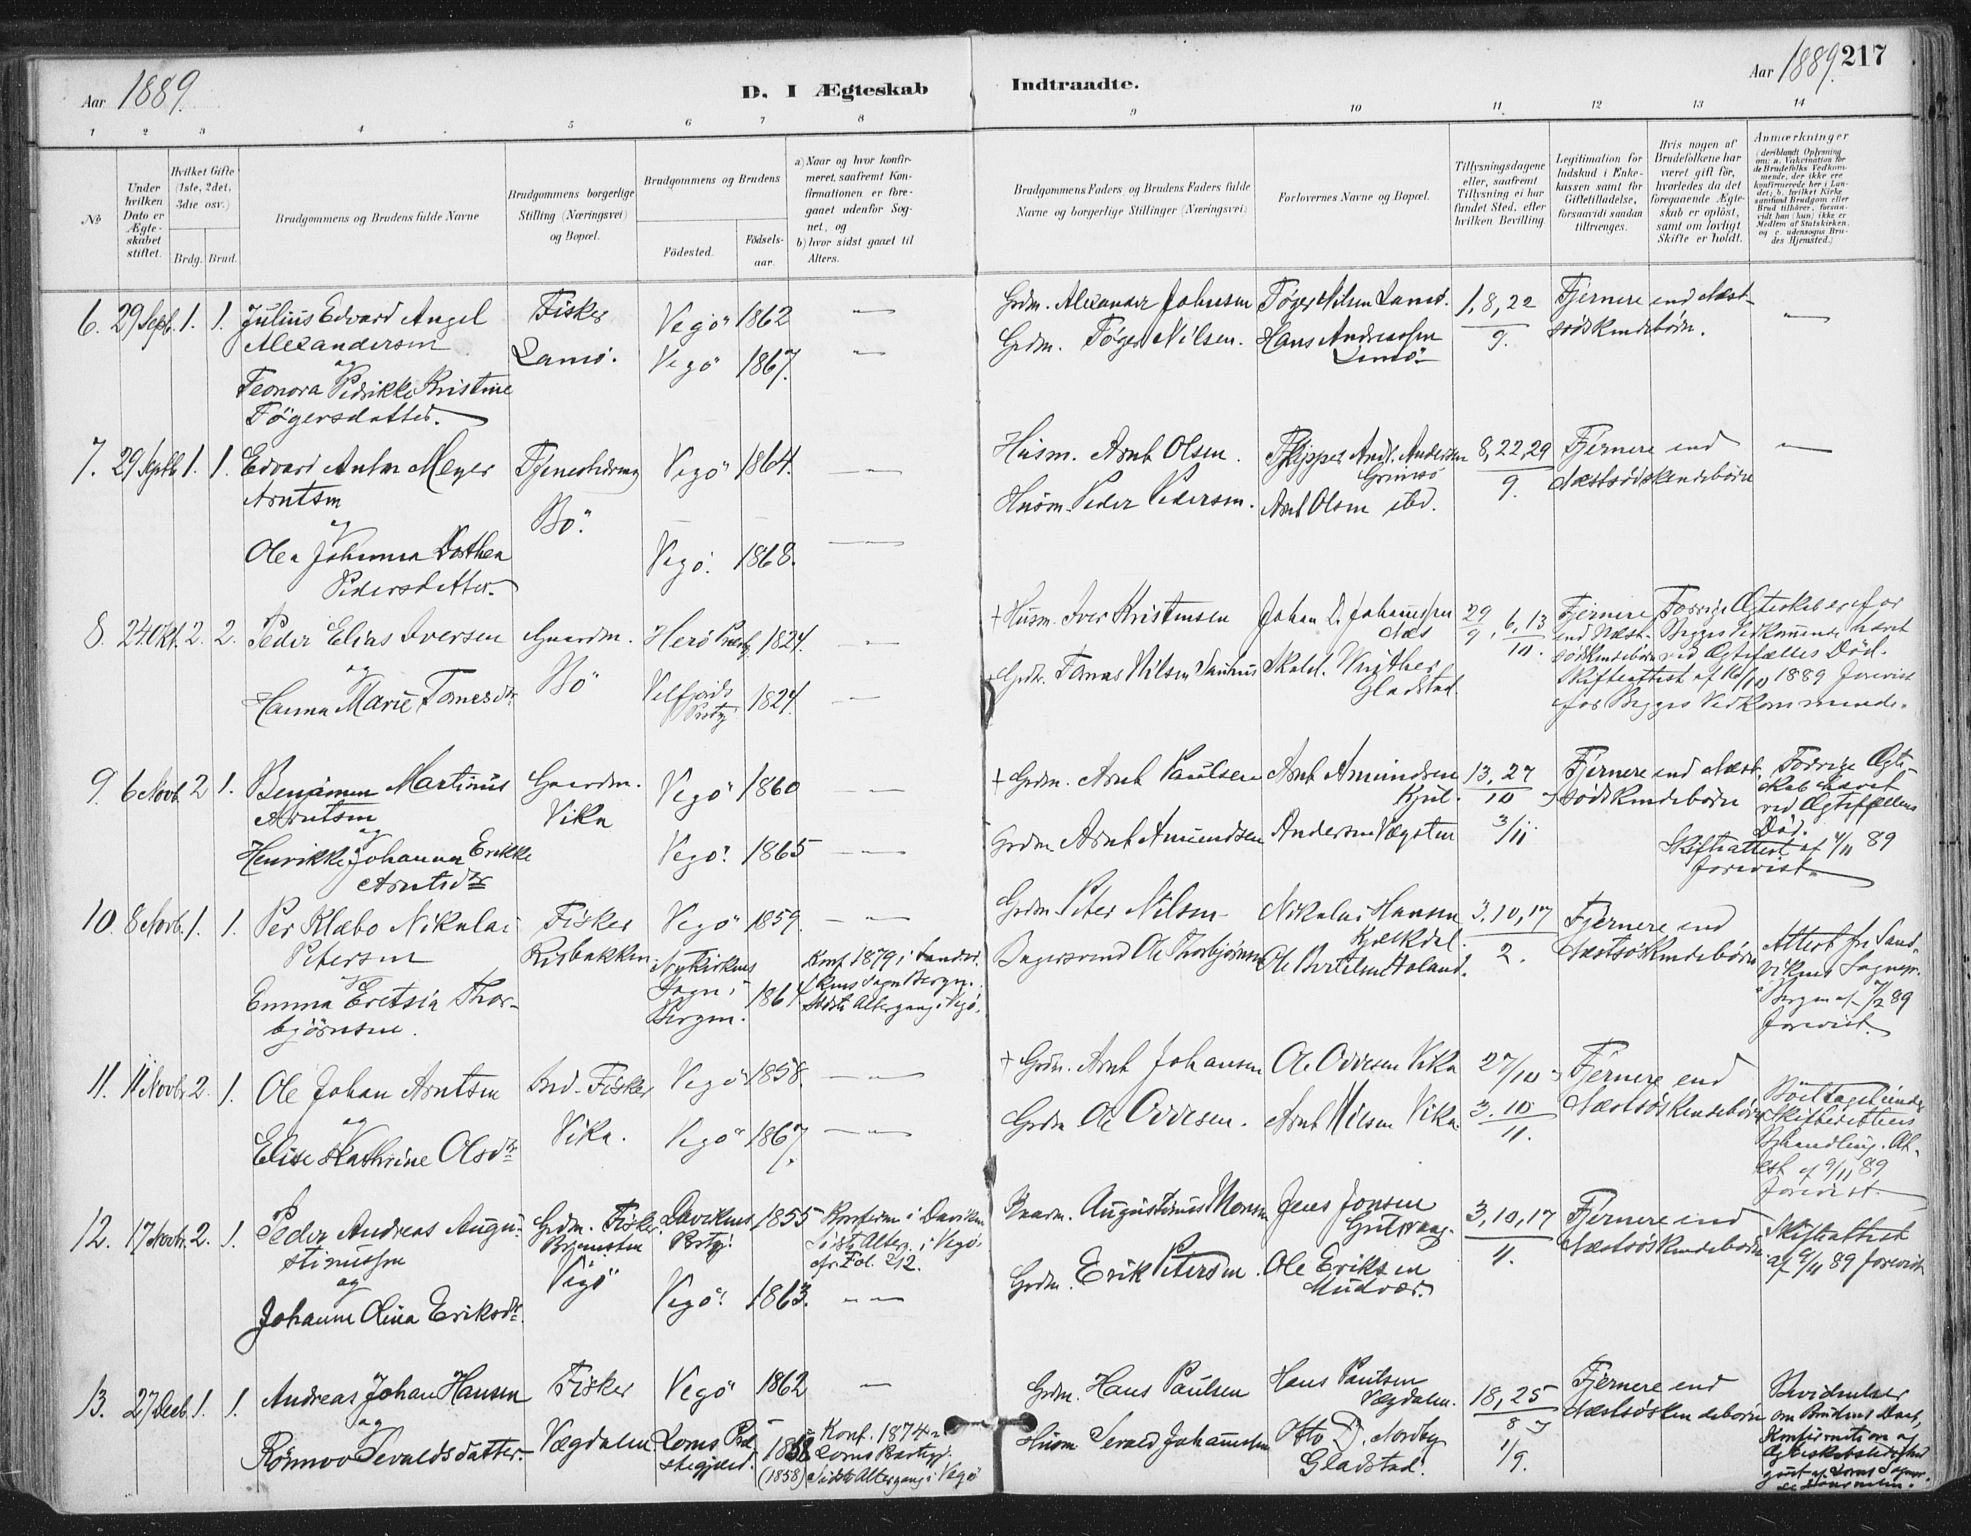 Aar 1889.
D. I Ægteskab
Indtraadte.
Aar 1889. 217
1 2 3 4 5 6 7 8 9 10 11 12 13 14
No
Under hvilken Dato er Ægteskabet stiftet.
Hvilket Gifte (1ste, 2det, 3die osv.)
Brdg. Brud.
Brudgommens og Brudens fulde Navne
Brudgommens borgerlige Stilling (Næringsvei) og Bopæl.
Brudgommens og Brudens
Födested. Födsels-aar.
a) Naar og hvor konfirmeret, saafremt Konfirmationen er foregaaet udenfor Sognet, og
b) hvor sidst gaaet til Alters.
Brudgommens Faders og Brudens Faders fulde Navne og borgerlige Stillinger (Næringsvei)
Forlovernes Navne og Bopæl.
Tillysningsdagene eller, saafremt Tillysning ei har fundet Sted, efter hvilken Bevilling
Legitimation for Indskud i Enkekassen samt for Giftetilladelse, forsaavidt saadan tiltrænges.
Hvis nogen af Brudefolkene har været gift før, hvorledes da det foregaaende Ægteskab er opløst, samt om lovligt Skifte er holdt.
Anmærkninger
6. 29 Sept. 1. 1. Julius Edvard Angel
Alexandersen
og
Leonora Pedrikke Kristine
Tøgersdatter.
Fisker
Vegö 1862 —
Vegö 1867. —
Grdm. Alexander Johnsen
Grdm. Tøger Nilsen.
Tøger Nilsen
Hans Andreassen
1, 8, 22
9.
Fjernere end Næst-
sødskendebørn.
—
7. 29 Septb. 1. 1. Edvard Anton Meyer
Arntsen
og
Olea Johanna Dorthea
Pedersdatter.
Tjenestedreng
Bö.
Vegö 1864. —
Vegö. 1868. —
Husm. Arnt Olsen.
Husm. Peder Pedersen.
Andr. Andersen
Arnt Olsen ibd.
8, 22, 29
9.
Fjernere end
Næstsødskendebørn
—
8. 24 Okt. 2. 2. Peder Elias Iversen
og
Hanna Marie Tomesdtr.
Gaardm.
Bö
Herö Præstg. 1824. —
Velfjords Prstgj. 1824. —
+ Husm. Iver Kristensen
Tomas Nilsen
Johan D. Johannessen
Næs
Gladstad.
29/9, 6, 13/10.
Fjernere end Næst-
sødskendebørn
Forrige Ægteskab er for
Begges Vedkommende hævet
ved Ægtefælles Död.
Skifteattest af 16/10 1889 forevist
for Begges Vedkommende.
9. 6 Novb. 2 1. Benjamin Martinus
Arntsen
og
Henrikke Johanna Erikke
Arntsdtr
Gaardm.
Vika
Vegö 1860 —
Vegö. 1865 —
+ Grdm. Arnt Paulsen
Grdm Arnt Amundsen
Arnt Amundsen
Kjul.
13, 27
10
3/11
Fjernere end Næst-
sødskendebørn
Forrige Ægte-
skab hævet
ved Ægtefællens
Död.
Skifteattest af 4/11 89
forevist.
10. 8 Novb. 1. 1. Per Klæbo Nikolai
Petersen
og
Emma Eretsia Thor-
bjørnsen.
Fisker
Kirbakken
Vegö 1859. —
Nykirkens
Sogn i
Bergen. 1864.
Konf. 1879 i Sandvi-
kens Sogn Bergen.
Sidste Altergang i Vegö.
Grdm Peter Nilsen
Ole Thorbjørnsen
Nikolai Hansen
3, 10, 17
2.
Fjernere end
Næstsødskendebørn
Attest fra Sand-
vikens Sognepr.
i Bergen af 7/2 89
forevist.
11. 11 Novbr. 2. 1. Ole Johan Arntsen
og
Elise Kathrine Olsdtr
Ind. Fisker
Vika.
Vegö 1858. —
Vegö 1867. —
+ Grdm. Arnt Johansen
Grdm Ole Ovresen.
Ole Ovresen Vika
Arnt Nilsen Vika.
27/10
3. 10
11.
Fjernere end
Næstsødskendebørn
Boet taget under
Skifterettens
Behandling. At-
test af 9/11 89
forevist.
12. 17 Novbr. 2. 1. Peder Andreas Augu-
stinussen
og
Johanne Olina Eriksdtr.
Grdm. Fisker
Vegö
Davikens
Prstgj. 1855
Vegö. 1863. —
Konfirm. i Daviken
Sidste Alterg. i Vegö.
cfr. Fol. 212.
Augustinus Monsen
Grdm. Erik Petersen
Jens Jonsen
Ole Eriksen
Mudvær.
3, 10, 17
11.
Fjernere end
Næstsødskendebørn.
Skifteattest
af 9/11 89 forevist
13. 27 Decb. 1. 1. Andreas Johan Hansen
og
Rönnov Sevaldsdatter.
Fisker
Vægdalen
Vegö 1862 —
Loms Præ-
stegjæld. 1858
(1858)
Konf. 1874 i
Loms Prstgj.
Sidste Altergang i Vegö
Grdm. Hans Paulsen
Husm Sevald Johannesen
Hans Paulsen
Vægdalen.
Otto D. Nordby
Gladstad.
18, 25
8
1/9.
Fjernere end
Næstsødskendebørn
Bevidnelser
om Brudens Daab,
Konfirmation og